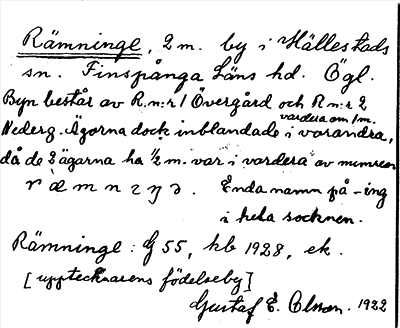 Rämninge, 2 m. by i Hällestads
sn. Finspånga Läns hd. Ögl.
Byn består av R.n:r 1 Övergård och R n:r 2
vardera om 1 m.
Nederg. Ägorna dock inblandade i varandra,
då de 2 ägarna ha ½ m. var i vardera av numren
Enda namn på -ing
i hela socknen.
Rämninge: G 55, hb 1928, ek.
[upptecknarens födelseby]
Gustaf E. Olsson. 1922